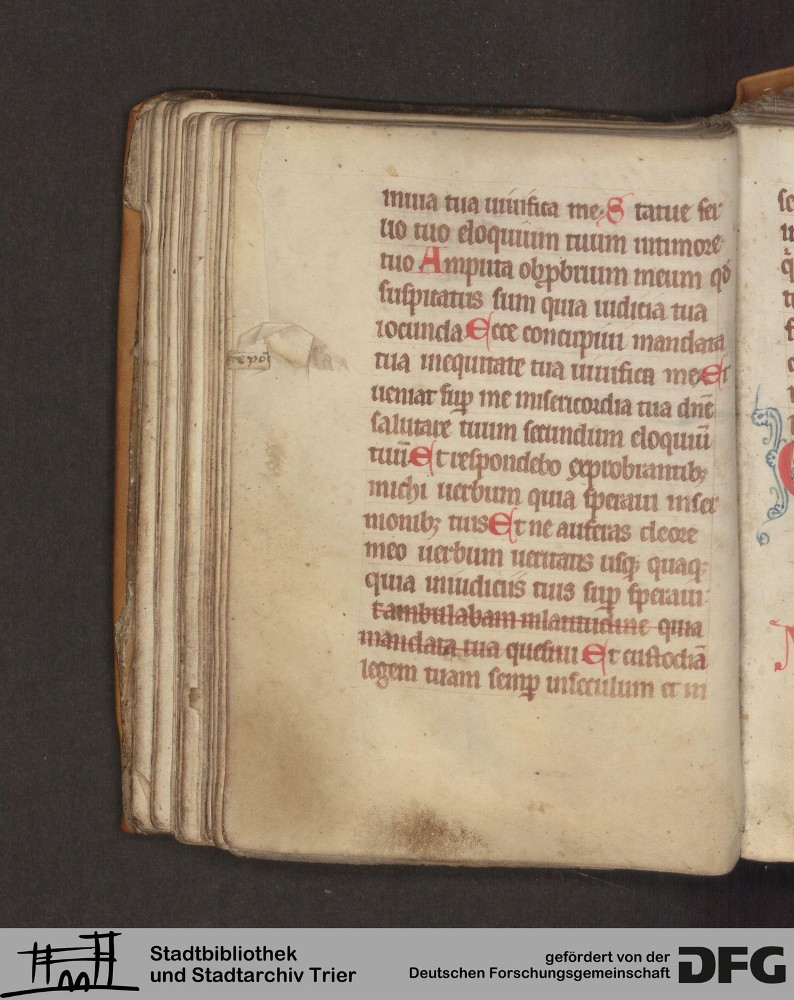 in uia tua uiuifica me. S tatue ser
uo tuo eloquium tuum in timore
tuo A mputa obp̱brium meum qd̛
suspicatus sum quia iudicia tua
iocunda E cce concupiui mandata
tua in equitate tua uiuifica me E t
ueniat sup̱ me misericordia tua dn̄e
salutare tuum secundum eloquiū
tuū E t respondebo exprobrantibꝫ
michi uerbum quia speraui in ser
monibꝫ tuis E t ne auferas de ore
meo uerbum ueritatis usqꝫ quaqꝫ
quia in iudiciis tuis sup̱ speraui
t ambulabam in latitudine quia
mandata tua quesiui E t custodiā
legem tuam semp̱ in seculum et in
Stadtbibliothek
und Stadtarchiv Trier
gefördert von der
Deutschen Forschungsgemeinschaft
DFG